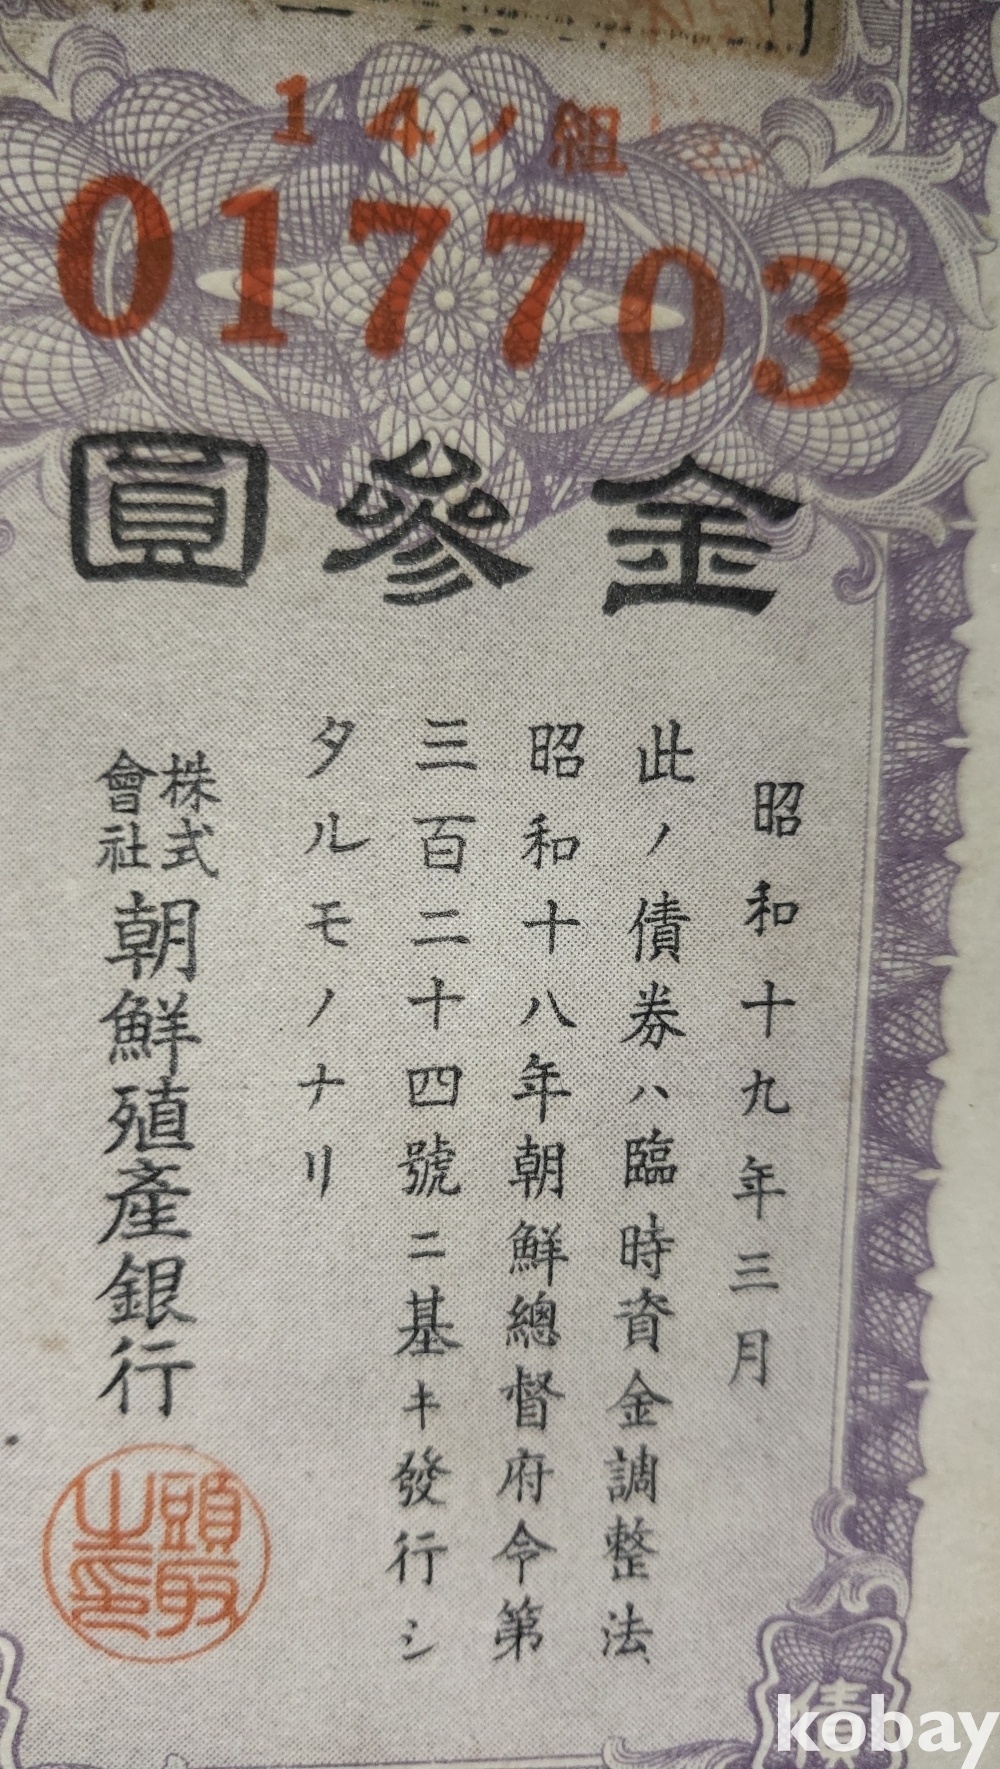 14ノ組
017703
金參圓
昭和十九年三月
此ノ債券ハ臨時資金調整法
昭和十八年朝鮮總督府令第
三百二十四號ニ基キ發行シ
タルモノナリ
株式會社朝鮮殖產銀行
頭取之印
債
kobay